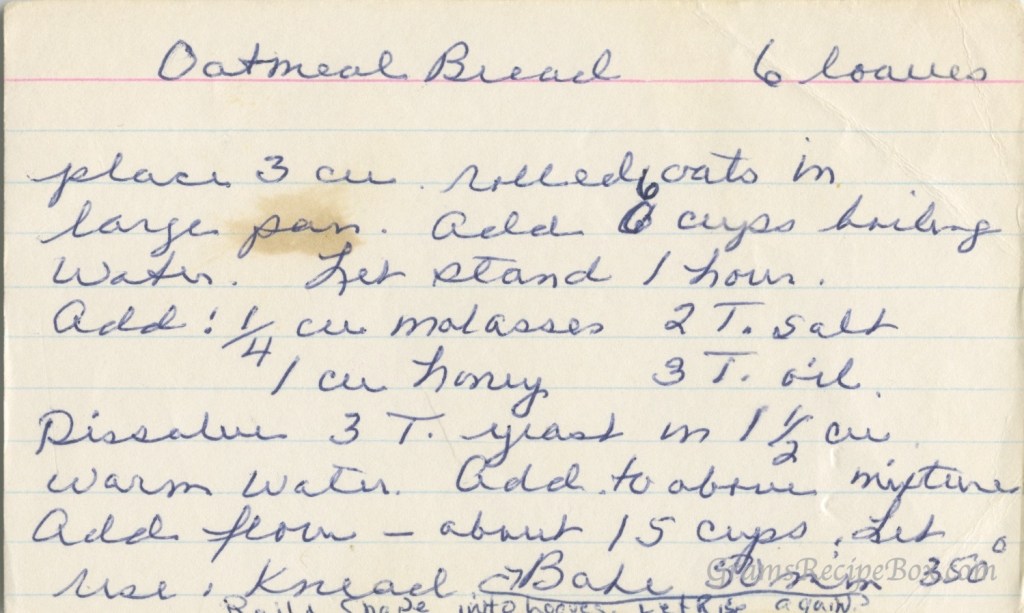 Oatmeal Bread 6 loaves
place 3 cu. rolled oats in
large pan. Add 6 6 cups boiling
Water. Let stand 1 hour.
Add: 1/4 cu molasses 2 T. salt
1 cu honey 3 T. oil.
Dissolve 3 T. yeast in 1 1/2 cu
warm water. Add to above mixture
Add flour - about 15 cups. Let
rise. Knead → Bake min 350°
Shape into loaves. Let Rise again.
GramsRecipeBox.com